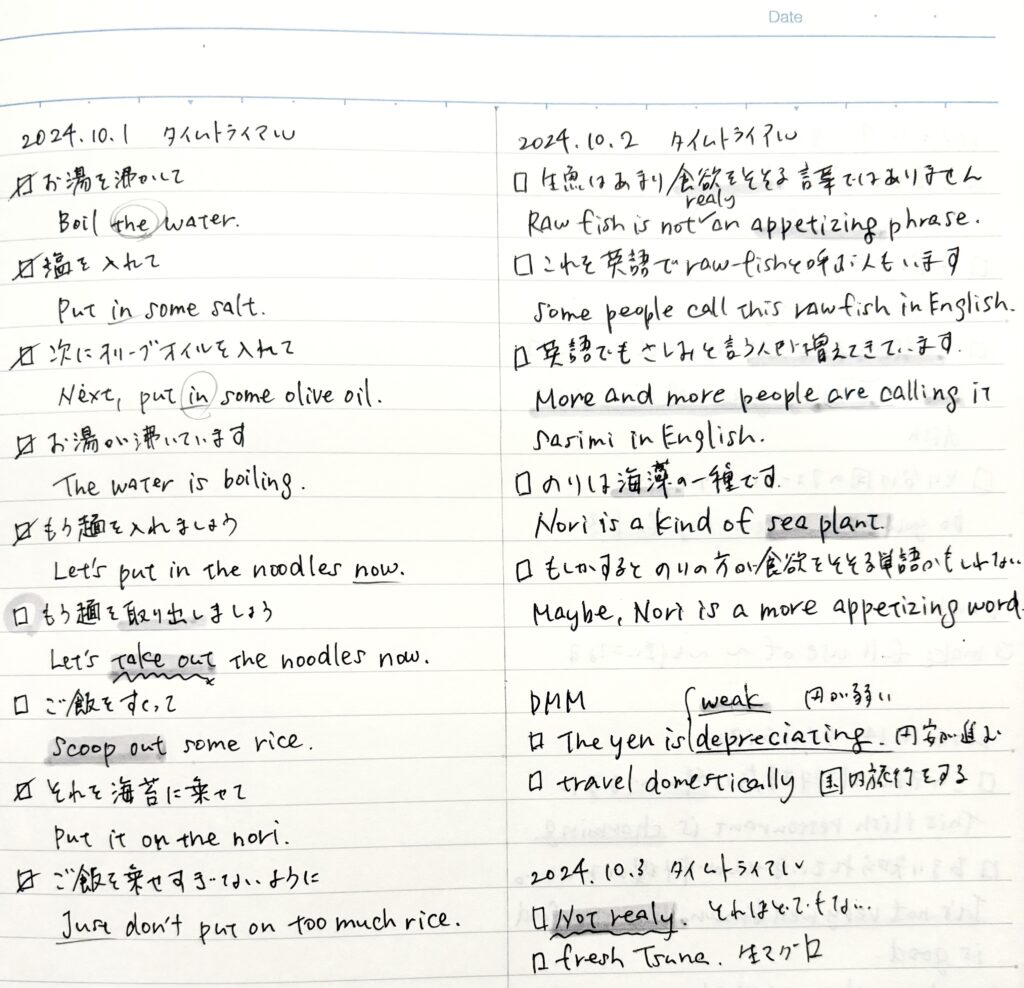 Date
2024.10.1 タイムトライアル
お湯を沸かして
Boil the water.
塩を入れて
Put in some salt.
次にオリーブオイルを入れて
Next, put in some olive oil.
お湯が沸いています
The water is boiling.
もう麺を入れましょう
Let's put in the noodles now.
もう麺を取り出しましょう
Let's take out the noodles now.
ご飯をすくって
Scoop out some rice.
それを海苔に乗せて
Put it on the nori.
ご飯を乗せすぎないように
Just don't put on too much rice.
2024.10.2 タイムトライアル
生魚はあまり食欲をそそる言葉ではありません
realy
Raw fish is not an appetizing phrase.
これを英語でraw fishと呼ぶ人もいます
Some people call this raw fish in English.
英語でもさしみと言う人が増えてきています.
More and more people are calling it
sasimi in English.
のりは海藻の一種です.
Nori is a kind of sea plant.
もしかするとのりの方が食欲をそそる単語かもしれない
Maybe, Nori is a more appetizing word.
DMM weak 円が弱い
The yen is depreciating. 円安が進む
travel domestically 国内旅行をする
2024.10.3 タイムトライアル
Not realy. それほどでもない..
fresh Tsuna. 生マグロ